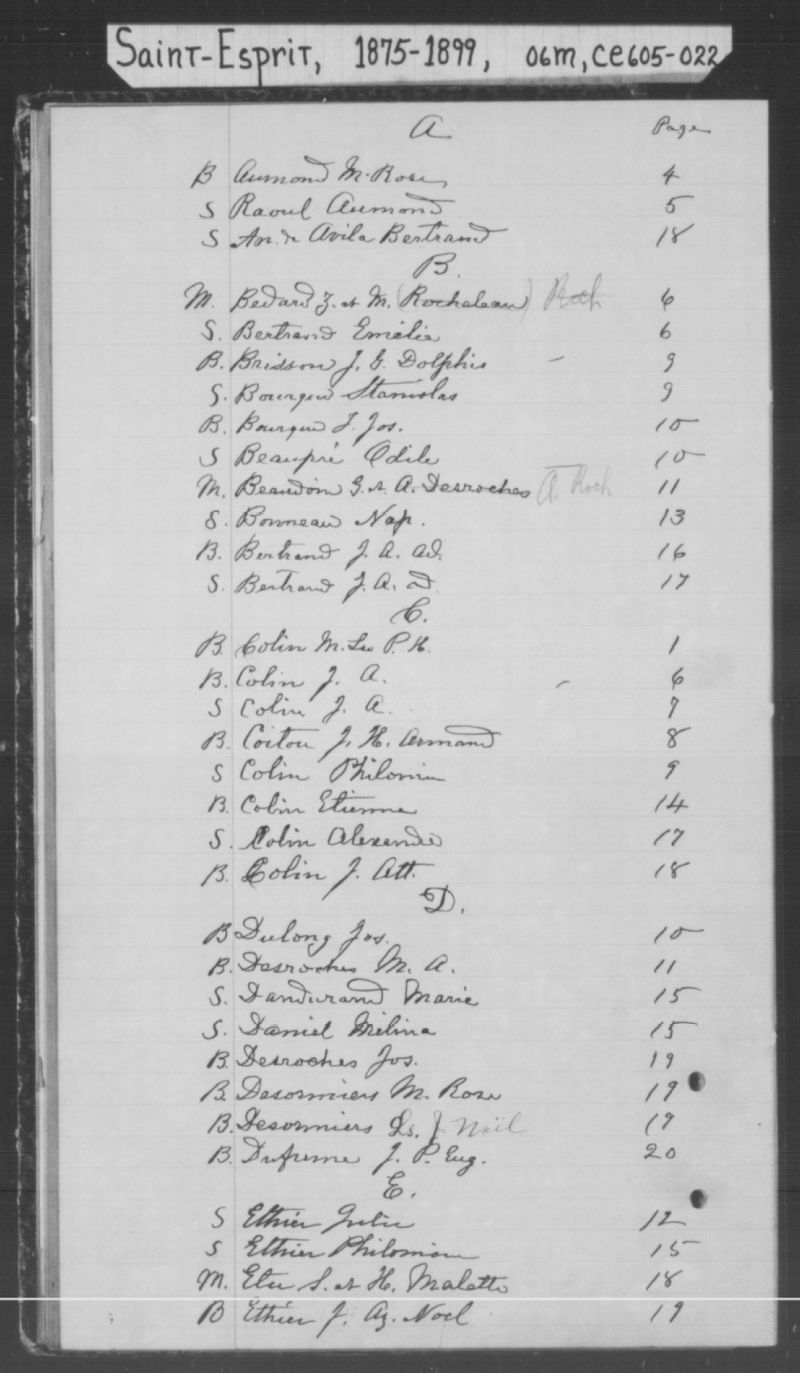 Saint-Esprit, 1875-1899, 06m, ce605-022
A Page
B Aumond M. Rose 4
S Raoul Aumond 5
S An. de Avila Bertrand 18
B.
M. Bedard Z. et M. (Rocheleau) Roch 6
S. Bertrand Emélie 6
B. Brisson J. G. Dolphis - 9
S. Bourque Stanislas 9
B. Bourque F. Jos. 10
S Beaupré Odile 10
M. Beaudoin G. et A. Desroches A. Roch 11
S. Bonneau Nap. 13
B. Bertrand J. A. ad. 16
S. Bertrand J. A. ad. 17
C.
B. Colin M. P. H. 1
B. Colin J. A. - 6
S Colin J. A. 7
B. Coitou J. H. Armand 8
S Colin Philomin 9
B. Colin Etienne 14
S. Colin Alexandre 17
B. Colin J. Att. 18
D.
B Dulong Jos. 10
B. Desroches M. A. 11
S. Dandurand Marie 15
S. Daniel Mélina 15
B. Desroches Jos. 19
B. Desormiers M. Rose 19
B. Desormiers Ls. J. Noël 19
B. Dufresne J. P. Eug. 20
E.
S Ethier Julie 12
S Ethier Philomène 15
M. Etu S. et H. Malette 18
B Ethier J. Az. Noel 19